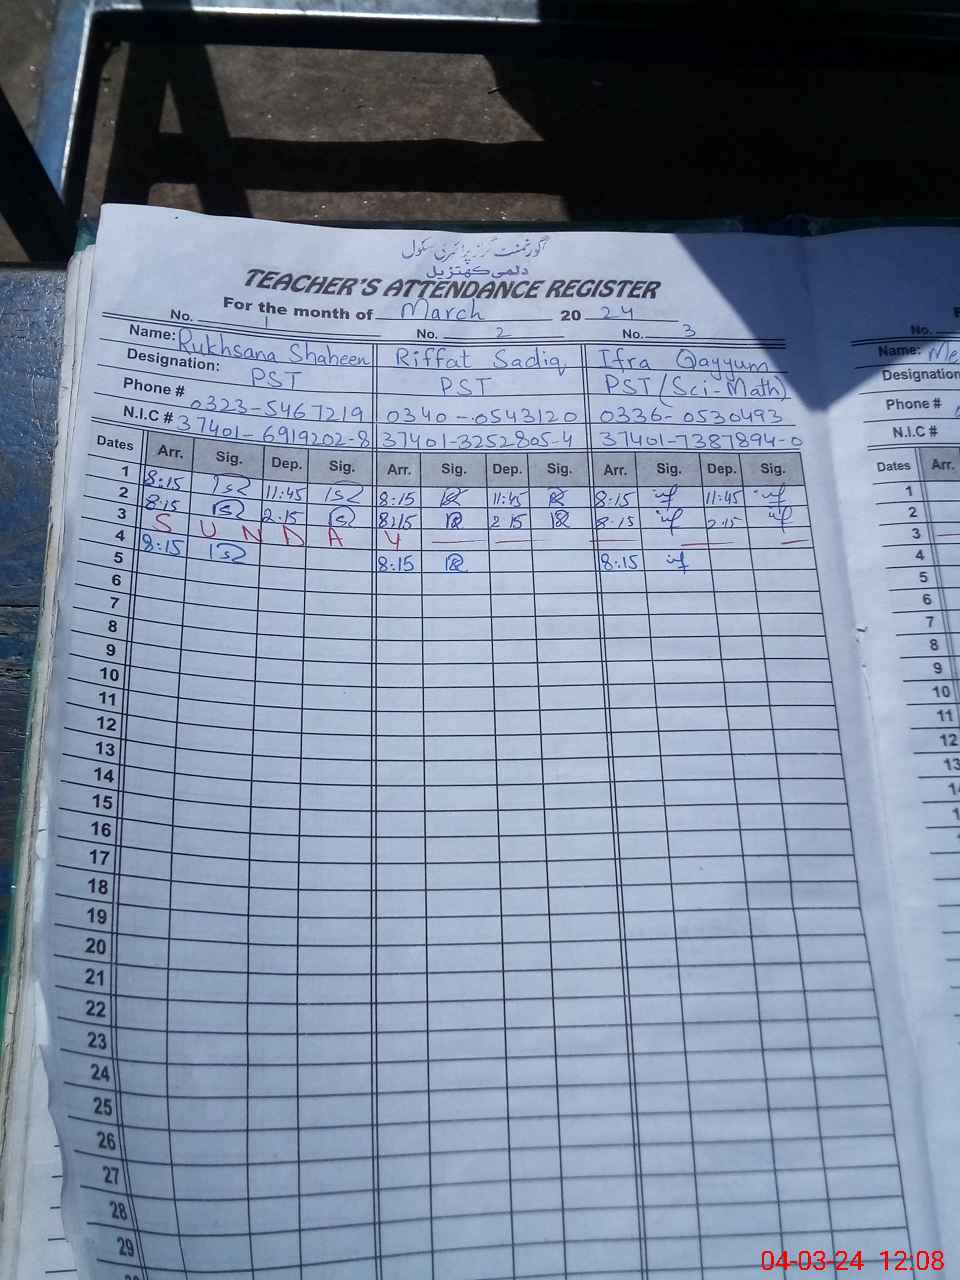 گورنمنٹ گرلز پرائمری سکول
دلمی کھتریل
TEACHER'S ATTENDANCE REGISTER
For the month of March 2024
No. 1 No. 2 No. 3
Name: Rukhsana Shaheen Riffat Sadiq Ifra Qayyum
Designation: PST PST PST (Sci-Math)
Phone # 0323-5467219 0340-0543120 0336-0530493
N.I.C # 37401-6919202-8 37401-3252805-4 37401-7387894-0
Dates Arr. Sig. Dep. Sig. Arr. Sig. Dep. Sig. Arr. Sig. Dep. Sig.
1 8:15 11:45 8:15 11:45 8:15 11:45
2 8:15 2:15 8:15 2:15 8:15 2:15
3 S U N D A Y
4 8:15 8:15 8:15
5
6
7
8
9
10
11
12
13
14
15
16
17
18
19
20
21
22
23
24
25
26
27
28
29
No.
Name: Me
Designation
Phone #
N.I.C #
Dates Arr.
1
2
3
4
5
6
7
8
9
10
11
12
13
04-03-24 12:08